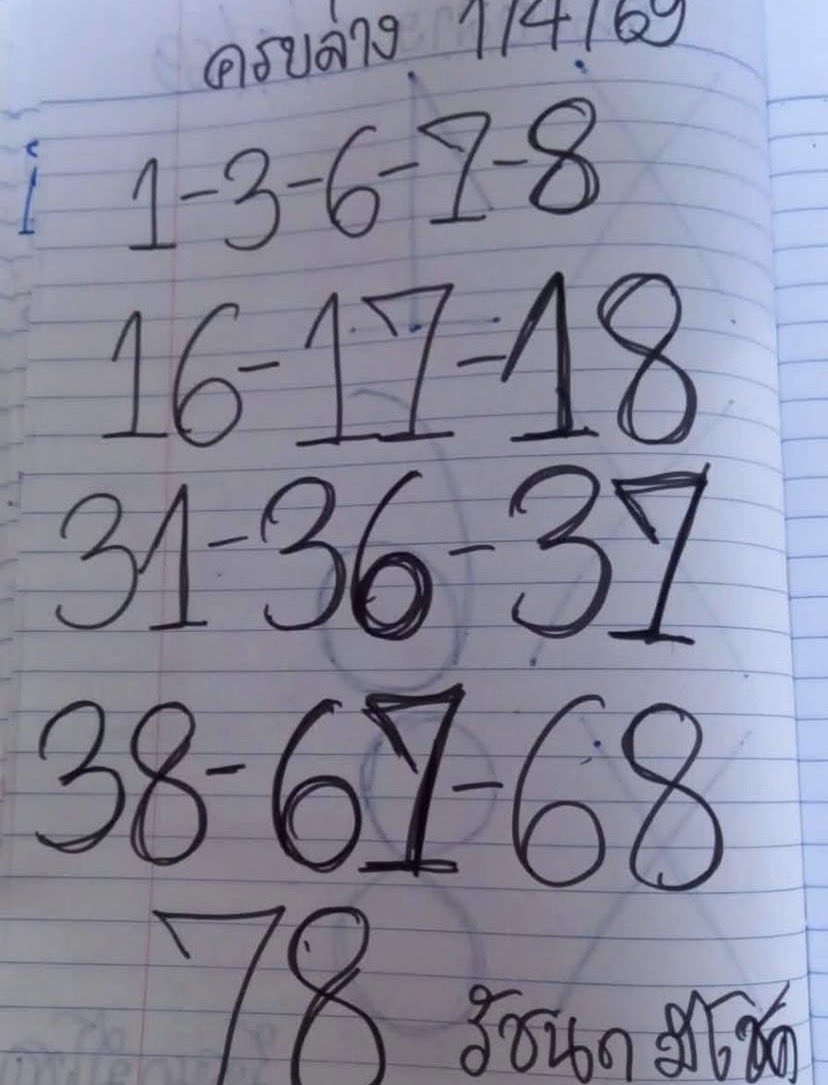 ครบล่าง 1/4/69
1-3-6-7-8
16-17-18
31-36-37
38-67-68
78 รัชนก มีโชค